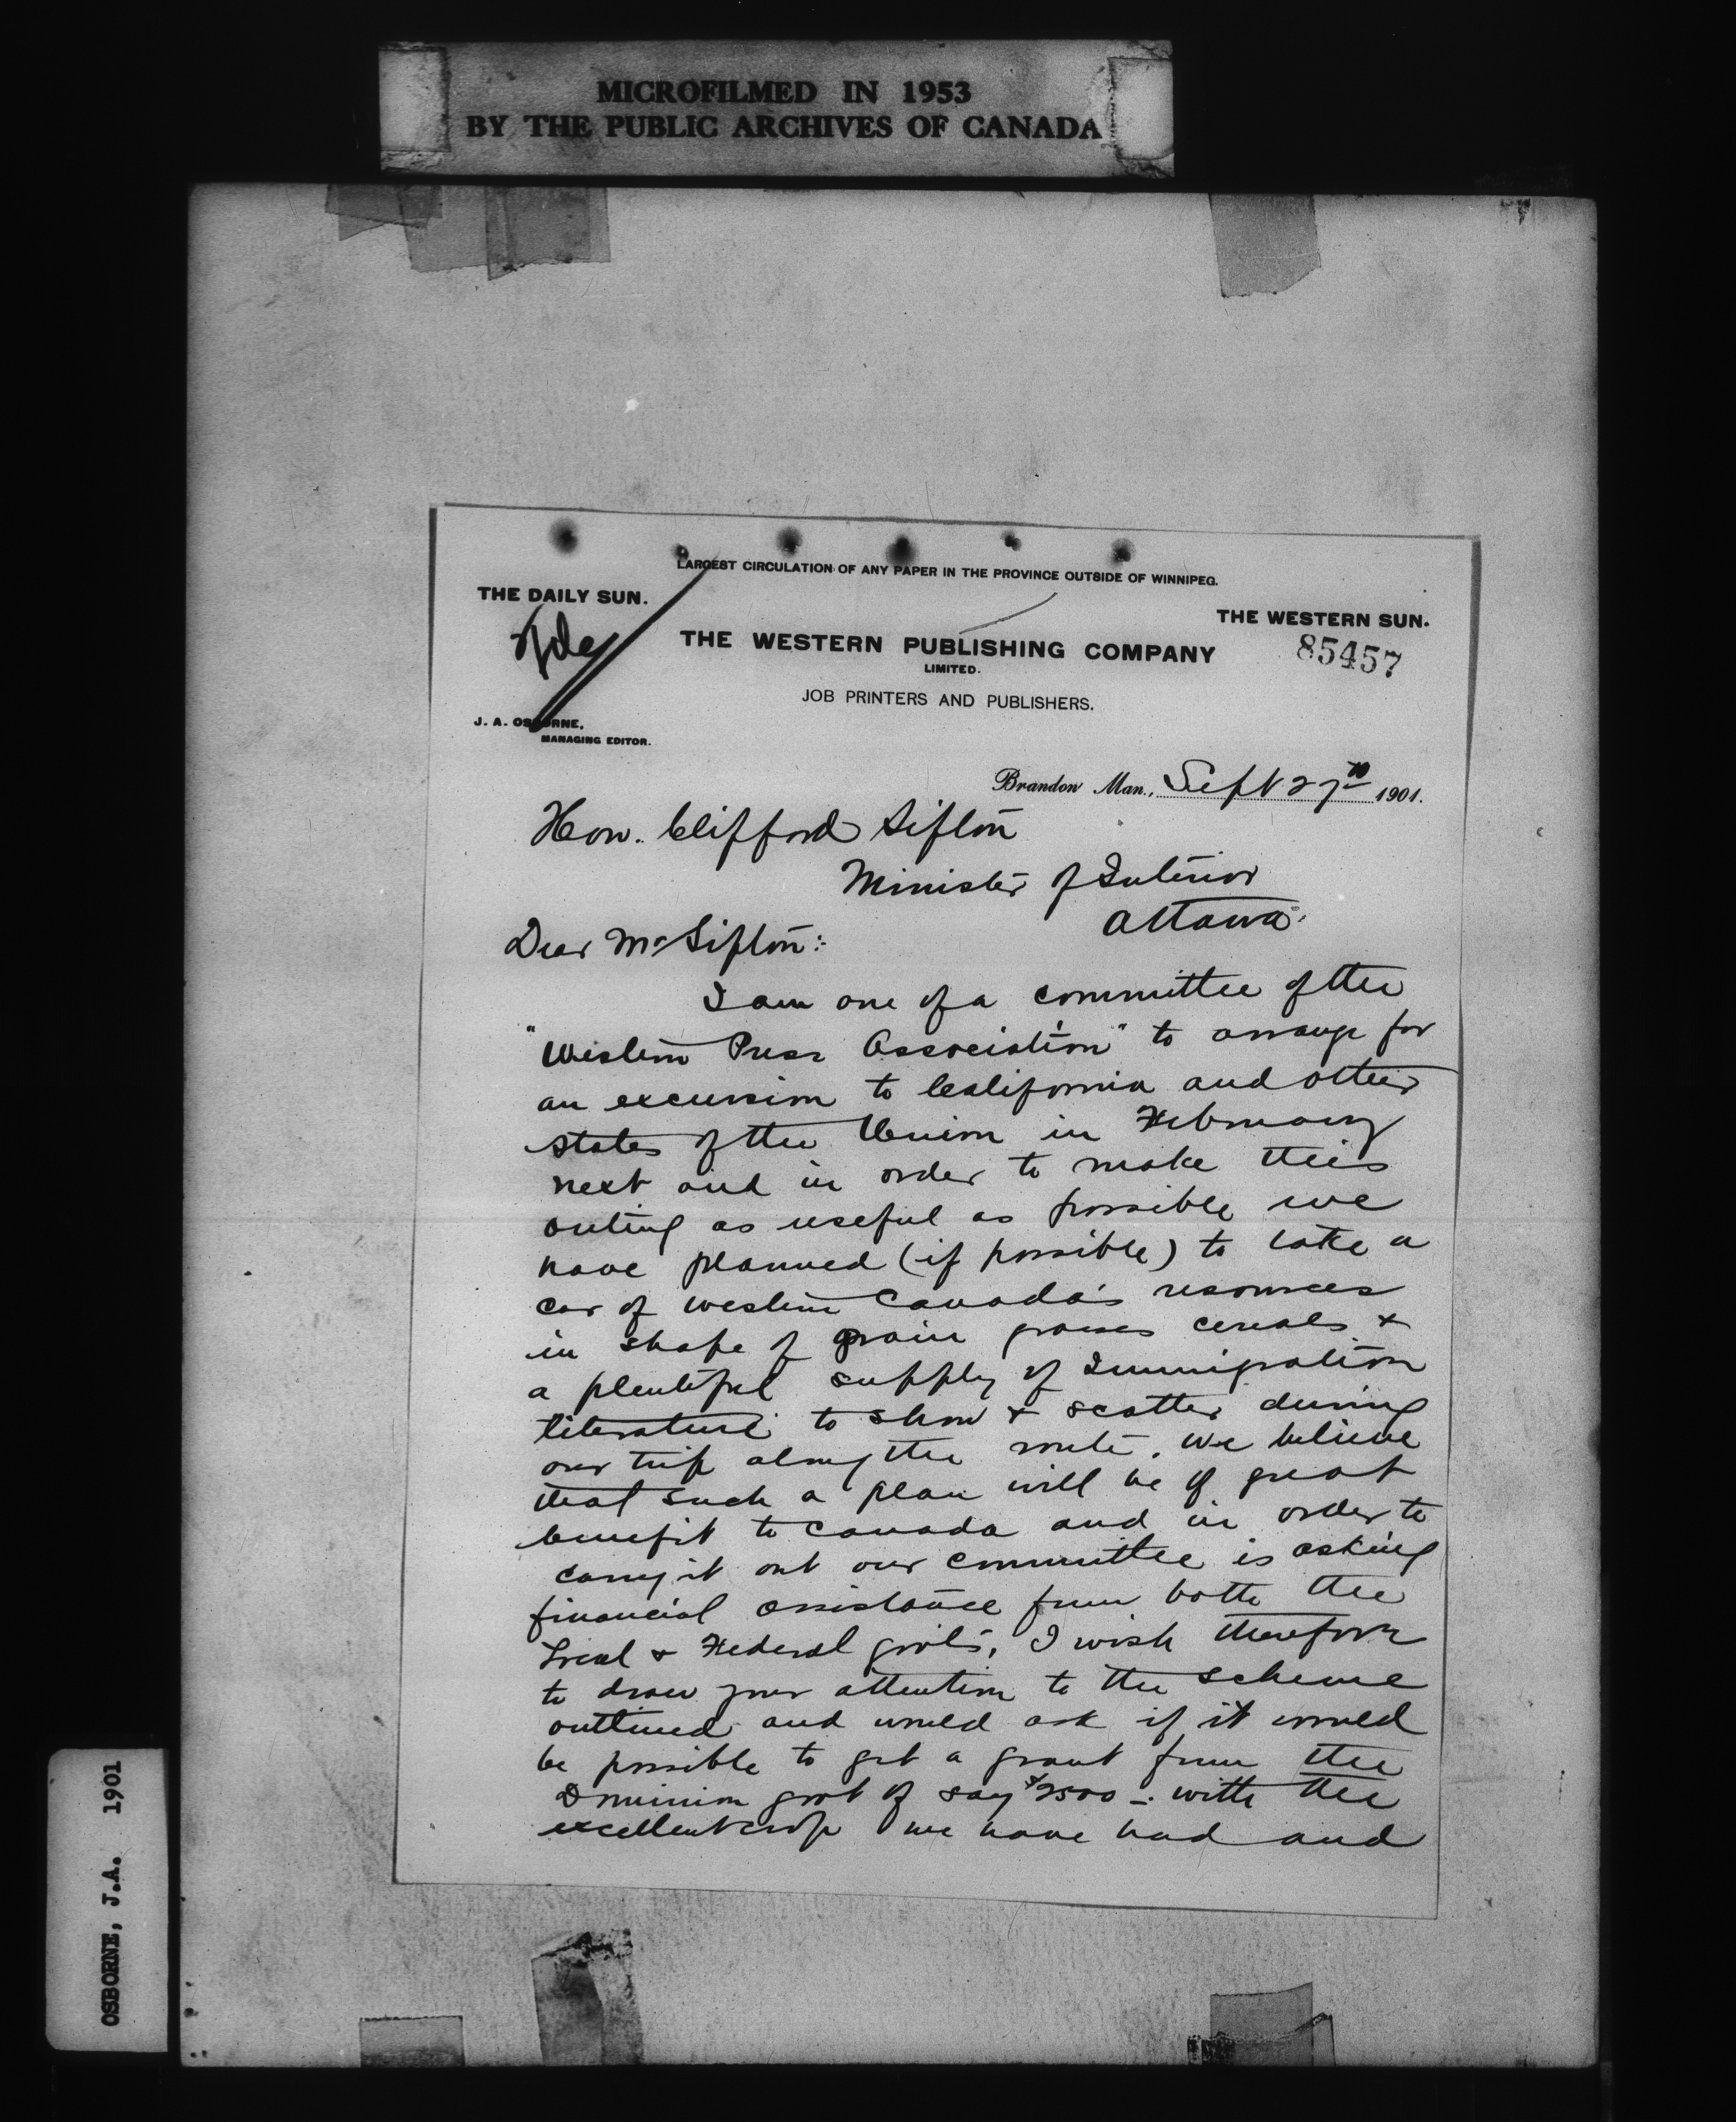 MICROFILMED IN 1953
BY THE PUBLIC ARCHIVES OF CANADA
LARGEST CIRCULATION OF ANY PAPER IN THE PROVINCE OUTSIDE OF WINNIPEG.
THE DAILY SUN.
THE WESTERN SUN.
File
THE WESTERN PUBLISHING COMPANY
LIMITED.
85457
JOB PRINTERS AND PUBLISHERS.
J. A. OSBORNE,
MANAGING EDITOR.
Brandon Man., Sept 27th 1901.
Hon. Clifford Sifton
Minister of Interior
Ottawa.
Dear Mr Sifton:
I am one of a committee of the
"Western Press Association" to arrange for
an excursion to California and other
states of the Union in February
next and in order to make this
outing as useful as possible we
have planned (if possible) to take a
car of western Canada's resources
in shape of grain grasses cereals &
a plentiful supply of Immigration
literature to show & scatter during
our trip along the route. We believe
that such a plan will be of great
benefit to Canada and in order to
carry it out our committee is asking
financial assistance from both the
Local & Federal govts, I wish therefore
to draw your attention to the scheme
outlined and would ask if it would
be possible to get a grant from the
Dominion govt of say $2500 -. with the
excellent crop we have had and
OSBORNE, J.A. 1901